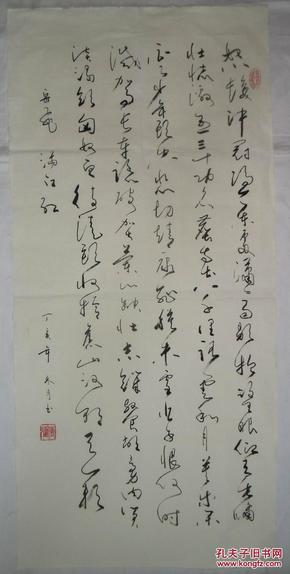 怒发冲冠凭栏处潇潇雨歇抬望眼仰天长啸
壮怀激烈三十功名尘与土八千里路云和月莫等闲
白了少年头空悲切靖康耻犹未雪臣子恨何时
灭驾长车踏破贺兰山缺壮志饥餐胡虏肉笑
谈渴饮匈奴血待从头收拾旧山河朝天阙
岳飞 满江红
丁亥年
孔夫子旧书网